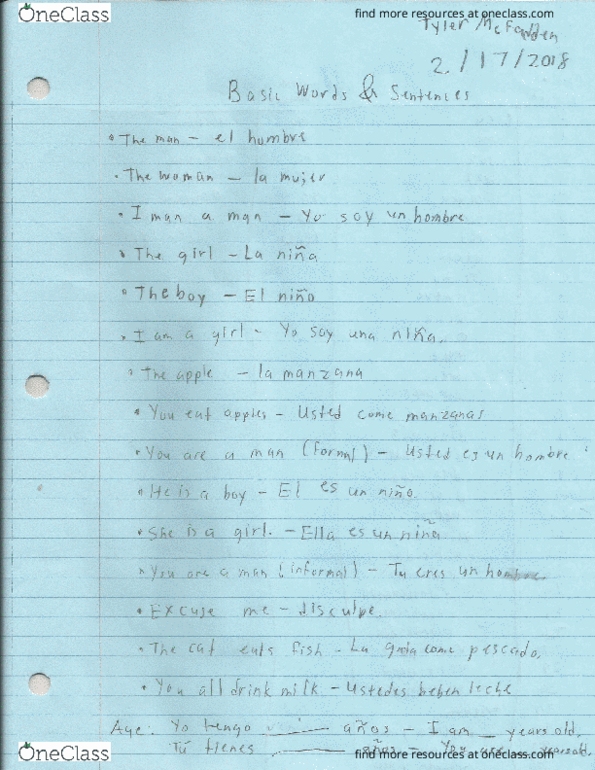 OneClass
find more resources at oneclass.com
find more resources at oneclass.com
Tyler McFadden
2/17/2018
Basic Words & Sentences
• The man – el hombre
• The woman – la mujer
• I man a man – Yo soy un hombre
• The girl – La niña
• The boy – El niño
• I am a girl – Yo soy una niña.
• The apple – la manzana
• You eat apples – Usted come manzanas
• You are a man (formal) – Usted es un hombre
• He is a boy – El es un niño
• She is a girl. – Ella es un niña
• You are a man (informal) – Tu eres un hombre.
• Excuse me – disculpe.
• The cat eats fish – La gata come pescado.
• You all drink milk – Ustedes beben leche
Age: Yo tengo ____ años – I am _ years old.
Tú tienes ____ años – You are years old.
OneClass
find more resources at oneclass.com
find more resources at oneclass.com